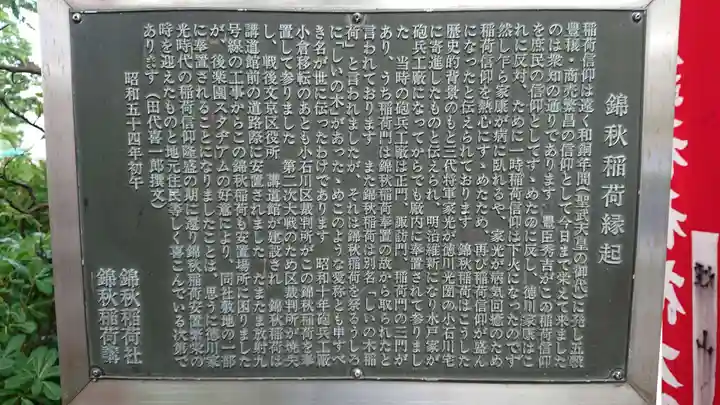 錦秋稲荷縁起
稲荷信仰は遠く和銅年間(聖武天皇の御代)に発し五穀
豊穣・商売繁昌の信仰として今日まで栄えて来ました
のは衆知の通りであります 豊臣秀吉がこの稲荷信仰
を庶民の信仰としてすゝめたのに反し、徳川家康はこ
れに反対、ために一時稲荷信仰は下火になったのです
然し乍ら家康が病に臥れるや、家光が病気回癒のため
稲荷信仰を熱心にすゝめたため、再び稲荷信仰が盛ん
になったと伝えられております 錦秋稲荷はこうした
歴史的背景のもと三代将軍家光が徳川光圀の小石川宅
に寄進したものと伝えられ、明治維新になり水戸家が
砲兵工廠になってからでも廠内に奉置されて参りまし
た 当時の砲兵工廠は正門、諏訪門、稲荷門の三門が
あり、うち稲荷門は錦秋稲荷奉置の故から取られたと
言われております また錦秋稲荷は別名「しいの木稲
荷」と言われましたが、それは錦秋稲荷を祭るうしろ
に「しいの木」があったゝめこのような愛称とも申すべ
き名が世に伝ったわけであります 昭和十年砲兵工廠
小倉移転のあとも小石川区裁判所がこの錦秋稲荷を奉
置して参りました 第二次大戦のため区裁判所が焼失
し、戦後文京区役所 講道館が建設され 錦秋稲荷は
講道館前の道路際に安置されました たまたま放射九
号線の工事からこの錦秋稲荷も安置場所に困りました
が、後楽園スタヂアムの好意により、同社敷地の一部
に奉置されることになりましたことは、思うに徳川家
光時代の稲荷信仰隆盛の期に還り、錦秋稲荷安置繁栄の
時を迎えたものと地元住民等しく喜こんでいる次第で
あります(田代喜一郎撰文)
昭和五十四年初午
錦秋稲荷社
錦秋稲荷講